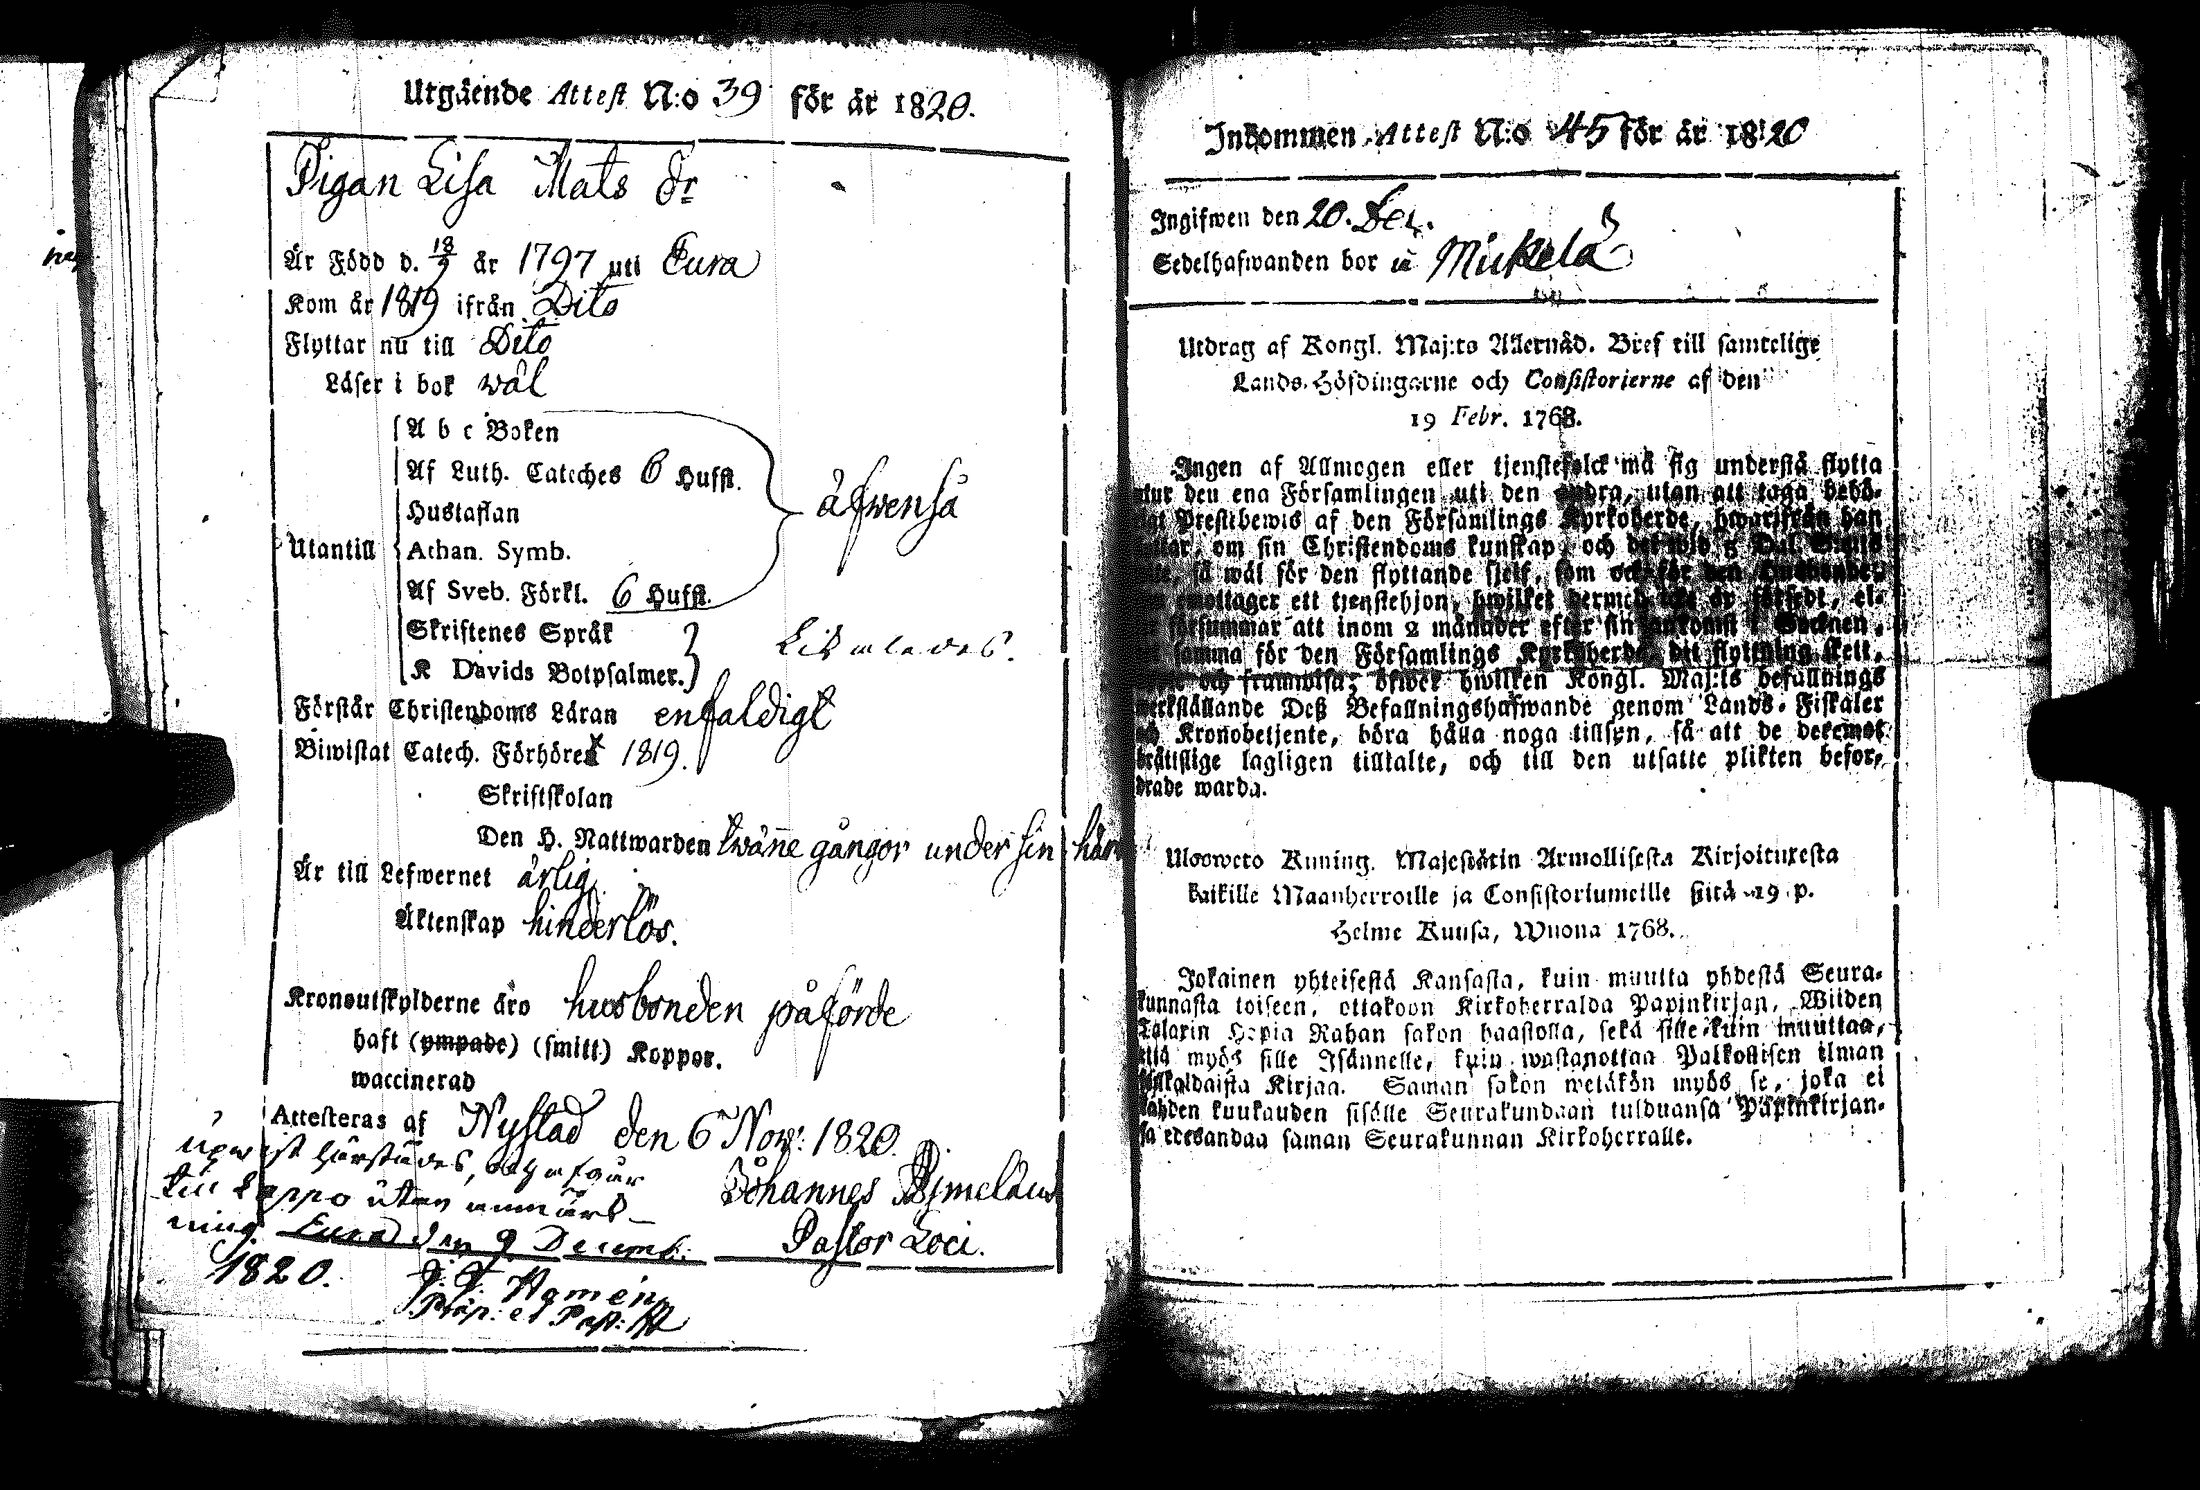 Utgående Attest N:o 39 för år 1820.
Pigan Lisa Mats dr
Är Född d. 18/9 år 1797 uti Eura
Kom år 1819 ifrån Dito
Flyttar nu till Dito
Läser i bok wäl
A b c Boken
Af Luth. Cateches 6 Hufst.
Hustaflan
äfwenså
Utantill
Athan. Symb.
Af Sveb. Förkl. 6 Hufst.
Skriftenes Språk
K Davids Botpsalmer.
Förstår Christendoms Läran enfaldigt
Biwistat Catech. Förhöret 1819.
Skriftskolan
Den H. Nattwarden twänne gångor under sin här
Är till Lefwernet ärlig
Äktenskap hinderlös.
Kronoutskylderne äro husbonden påförde
haft (ympade) (smitt) Koppor.
waccinerad
Attesteras af Nystad den 6 Nov: 1820.
härstädes,
Johannes
till Lappo utan anmärk-
ning Eura den 9 Decemb:
Pastor Loci.
1820.
Præp: et Past:
Inkommen Attest N:o 45 för år 1820
Ingifwen den 20. Dec.
Sedelhafwanden bor i Mickelä
Utdrag af Kongl. Maj:ts Allernåd. Bref till samtelige
Lands-Höfdingarne och Consistorierne af den
19 Febr. 1768.
Ingen af Allmogen eller tjenstefolck må sig understå flytta
utur den ena Församlingen uti den andra, utan att taga behö-
Prestbewis af den Församlings Kyrkoherde, hwarifrån han
om sin Christendoms kunskap, och det wid 5 Dal.
så wäl för den flyttande sjelf, som ock för den
emottager ett tjenstehjon, hwilket dermed icke är försedt, el-
försummar att inom 2 månader efter sin ankomst i Socknen,
samma för den Församlings Kyrkoherde, dit flyttning skett,
och framwisa; öfwer hwilken Kongl. Maj:ts befallnings
werkställande Deß Befallningshafwande genom Lands-Fiskaler
och Kronobetjente, böra hålla noga tillsyn, så att de deremot
brättslige lagligen tilltalte, och till den utsatte plikten befor-
drade warda.
Ulosweto Kuning. Majestätin Armollisesta Kirjoituxesta
kaikille Maanherroille ja Consistoriumeille siitä 19 p.
Helme Kuusa, Wuona 1768.
Jokainen yhteisestä Kansasta, kuin muutta yhdestä Seura-
kunnasta toiseen, ottakoon Kirkoherralda Papinkirjan, Wiiden
Talarin Hopia Rahan sakon haastolla, sekä sille kuin muuttaa,
että myös sille Isännelle, kuin wastanottaa Palkollisen ilman
Kirjaa. Saman sakon wetäkön myös se, joka ei
kahden kuukauden sisälle Seurakundaan tulduansa Papinkirjan-
sa edesandaa saman Seurakunnan Kirkoherralle.